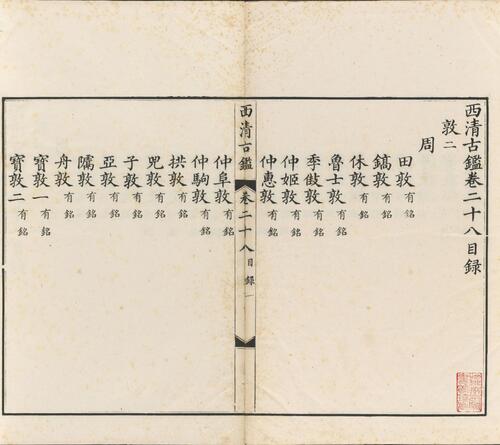 西清古鑑卷二十八目録
敦二
周
田敦有銘
鎬敦有銘
休敦有銘
魯士敦有銘
季㪤敦有銘
仲姬敦有銘
仲惠敦有銘
西清古鑑 卷二十八目録 一
仲阜敦有銘
仲駒敦有銘
拱敦有銘
兕敦有銘
子敦有銘
亞敦有銘
隭敦有銘
舟敦有銘
寶敦一有銘
寶敦二有銘